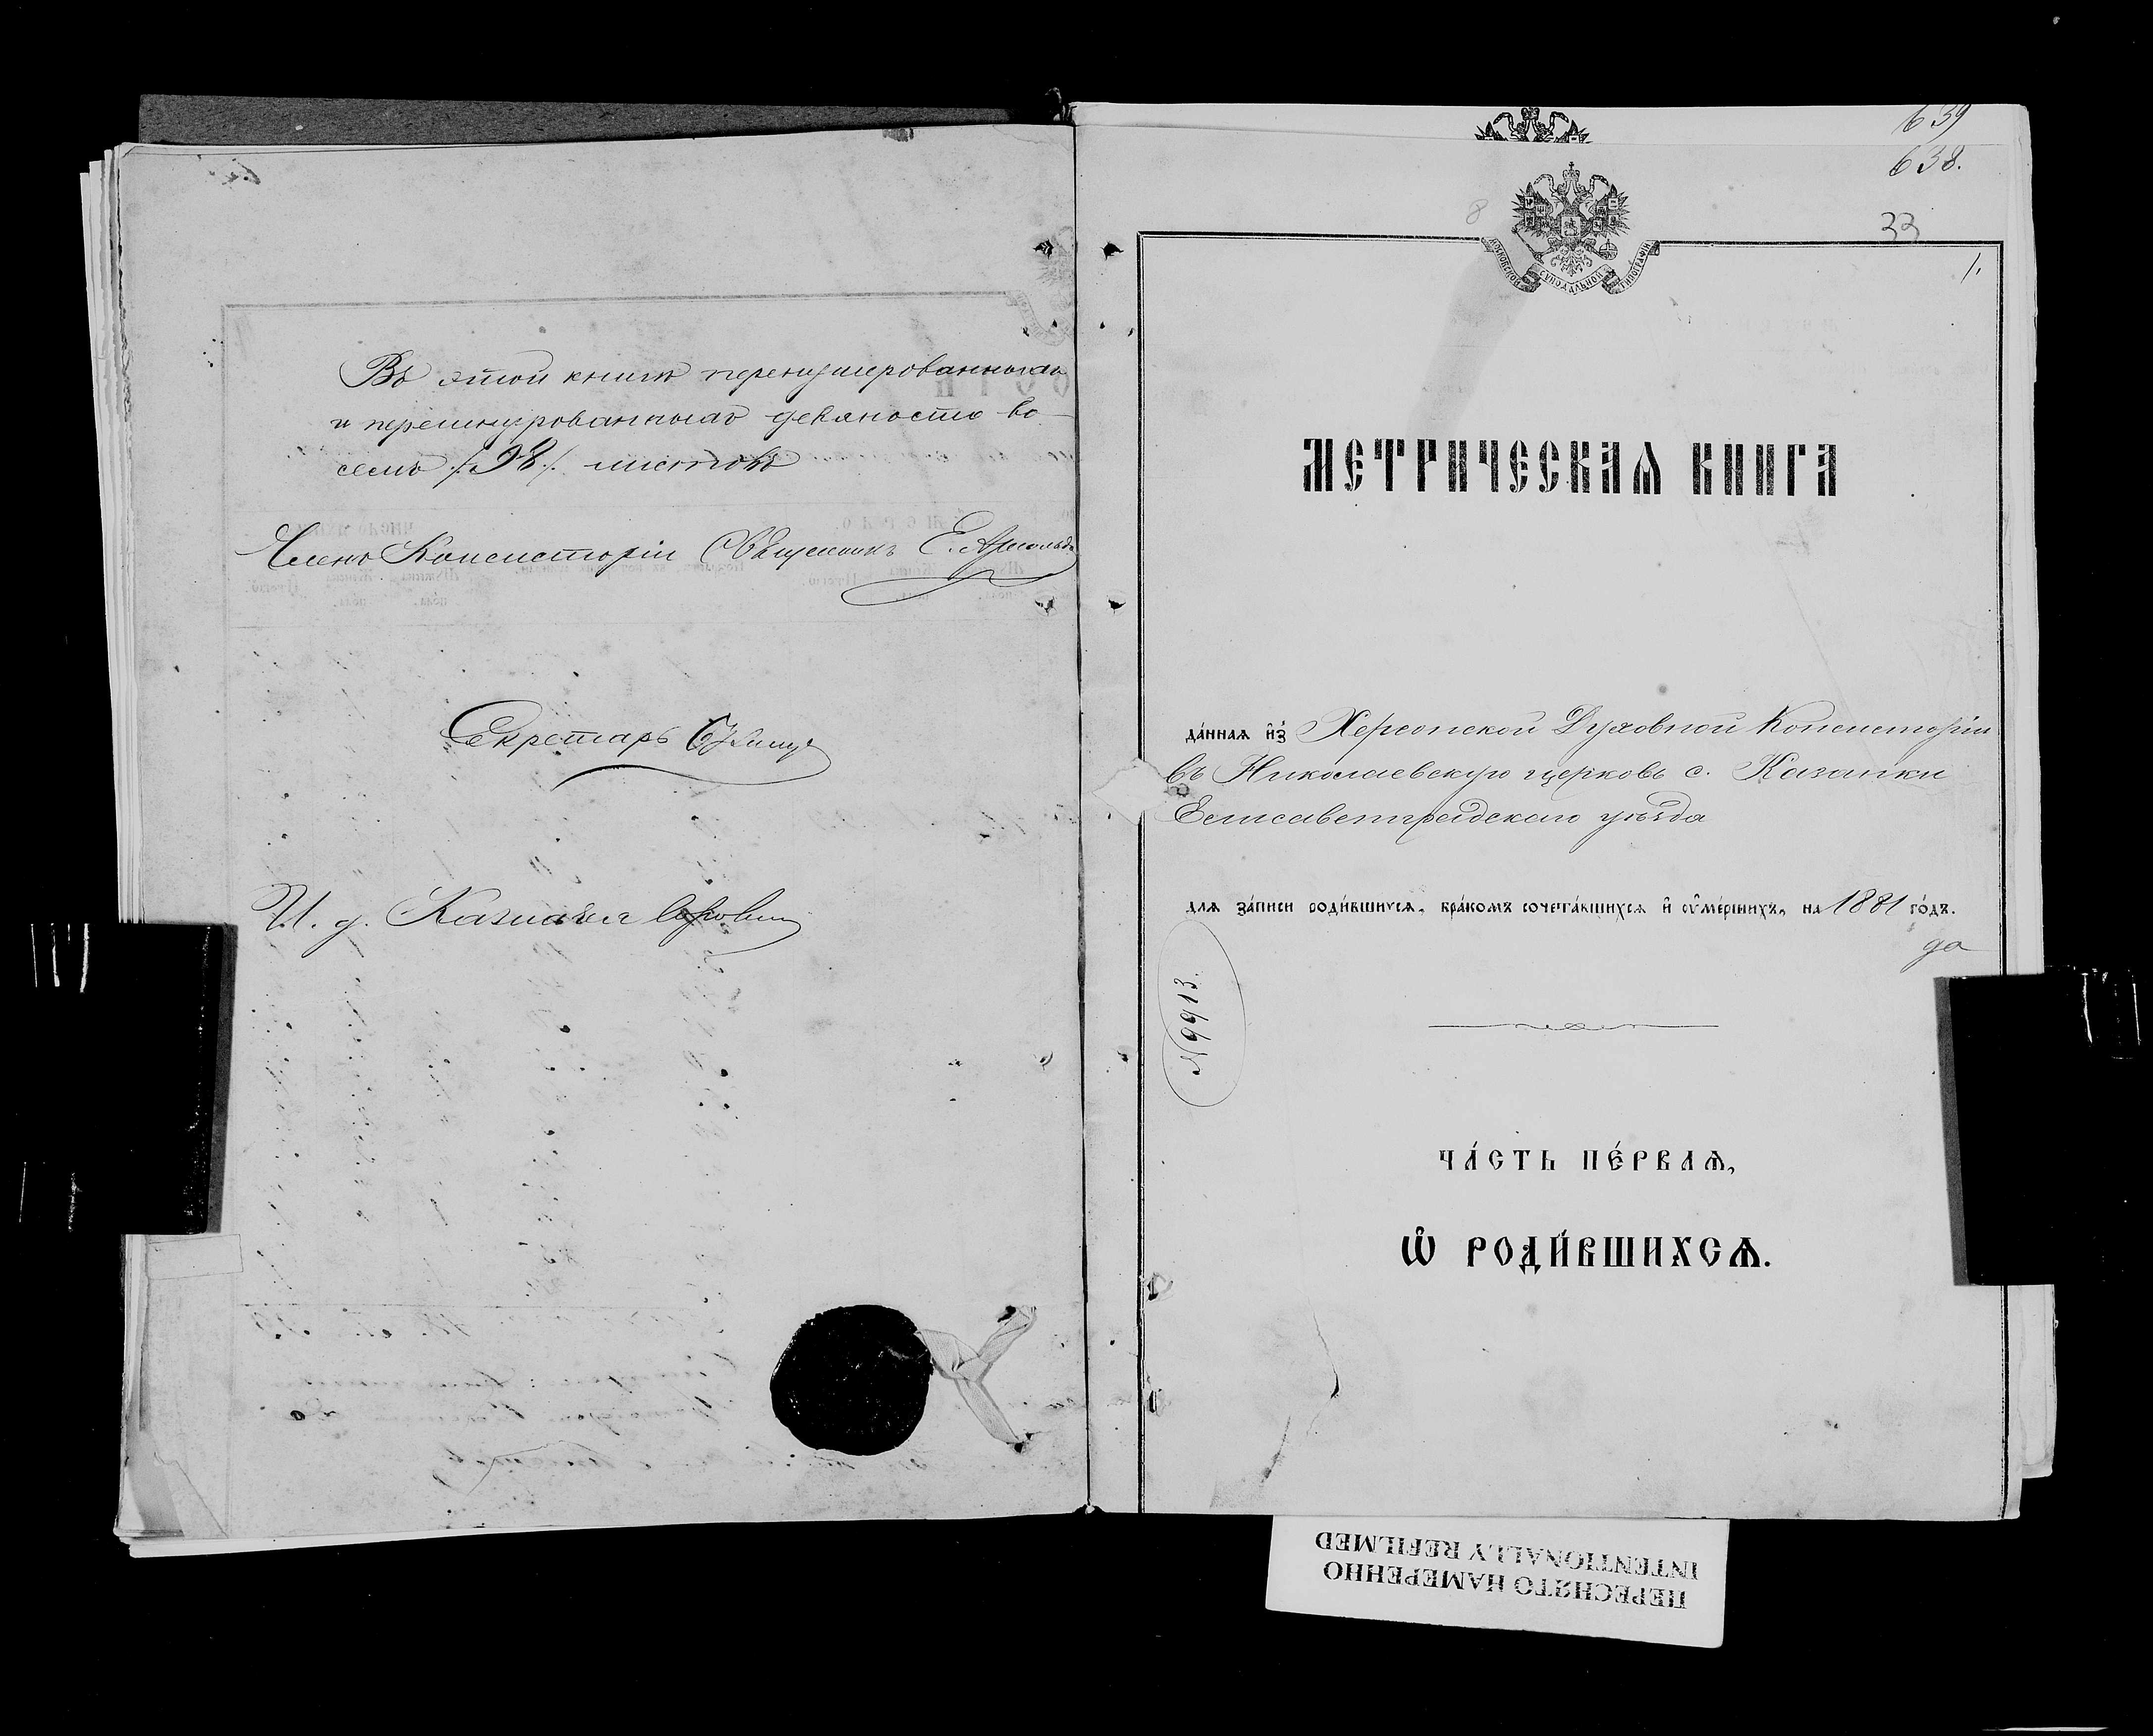 Въ этой книгѣ перенумерованныхъ
и перешнурованныхъ девяносто во-
семь /98/ листовъ
Членъ Консисторіи Священникъ Е. Арнольдъ
Секретарь
И. д. Казначея
639
638.
33
8
1.
МОСКОВСКОЙ СѴНОДАЛЬНОЙ ТИПОГРАФІИ
МЕТРИЧЕСКАѦ КНИГА
да́ннаѧ и҆з̾ Херсонской Духовной Консисторіи
въ Николаевскую церковь с. Казанки
Елисаветградскаго уѣзда
длѧ за́писи роди́вшихсѧ, бра́комъ сочета́вшихсѧ и҆ ᲂу҆ме́ршихъ, на 1881 го́дъ.
да
№ 9913.
ЧА́СТЬ ПЕ́РВАѦ,
Ѽ РОДИ́ВШИХСѦ.
ПЕРЕСНЯТО НАМЕРЕННО
INTENTIONALLY REFILMED